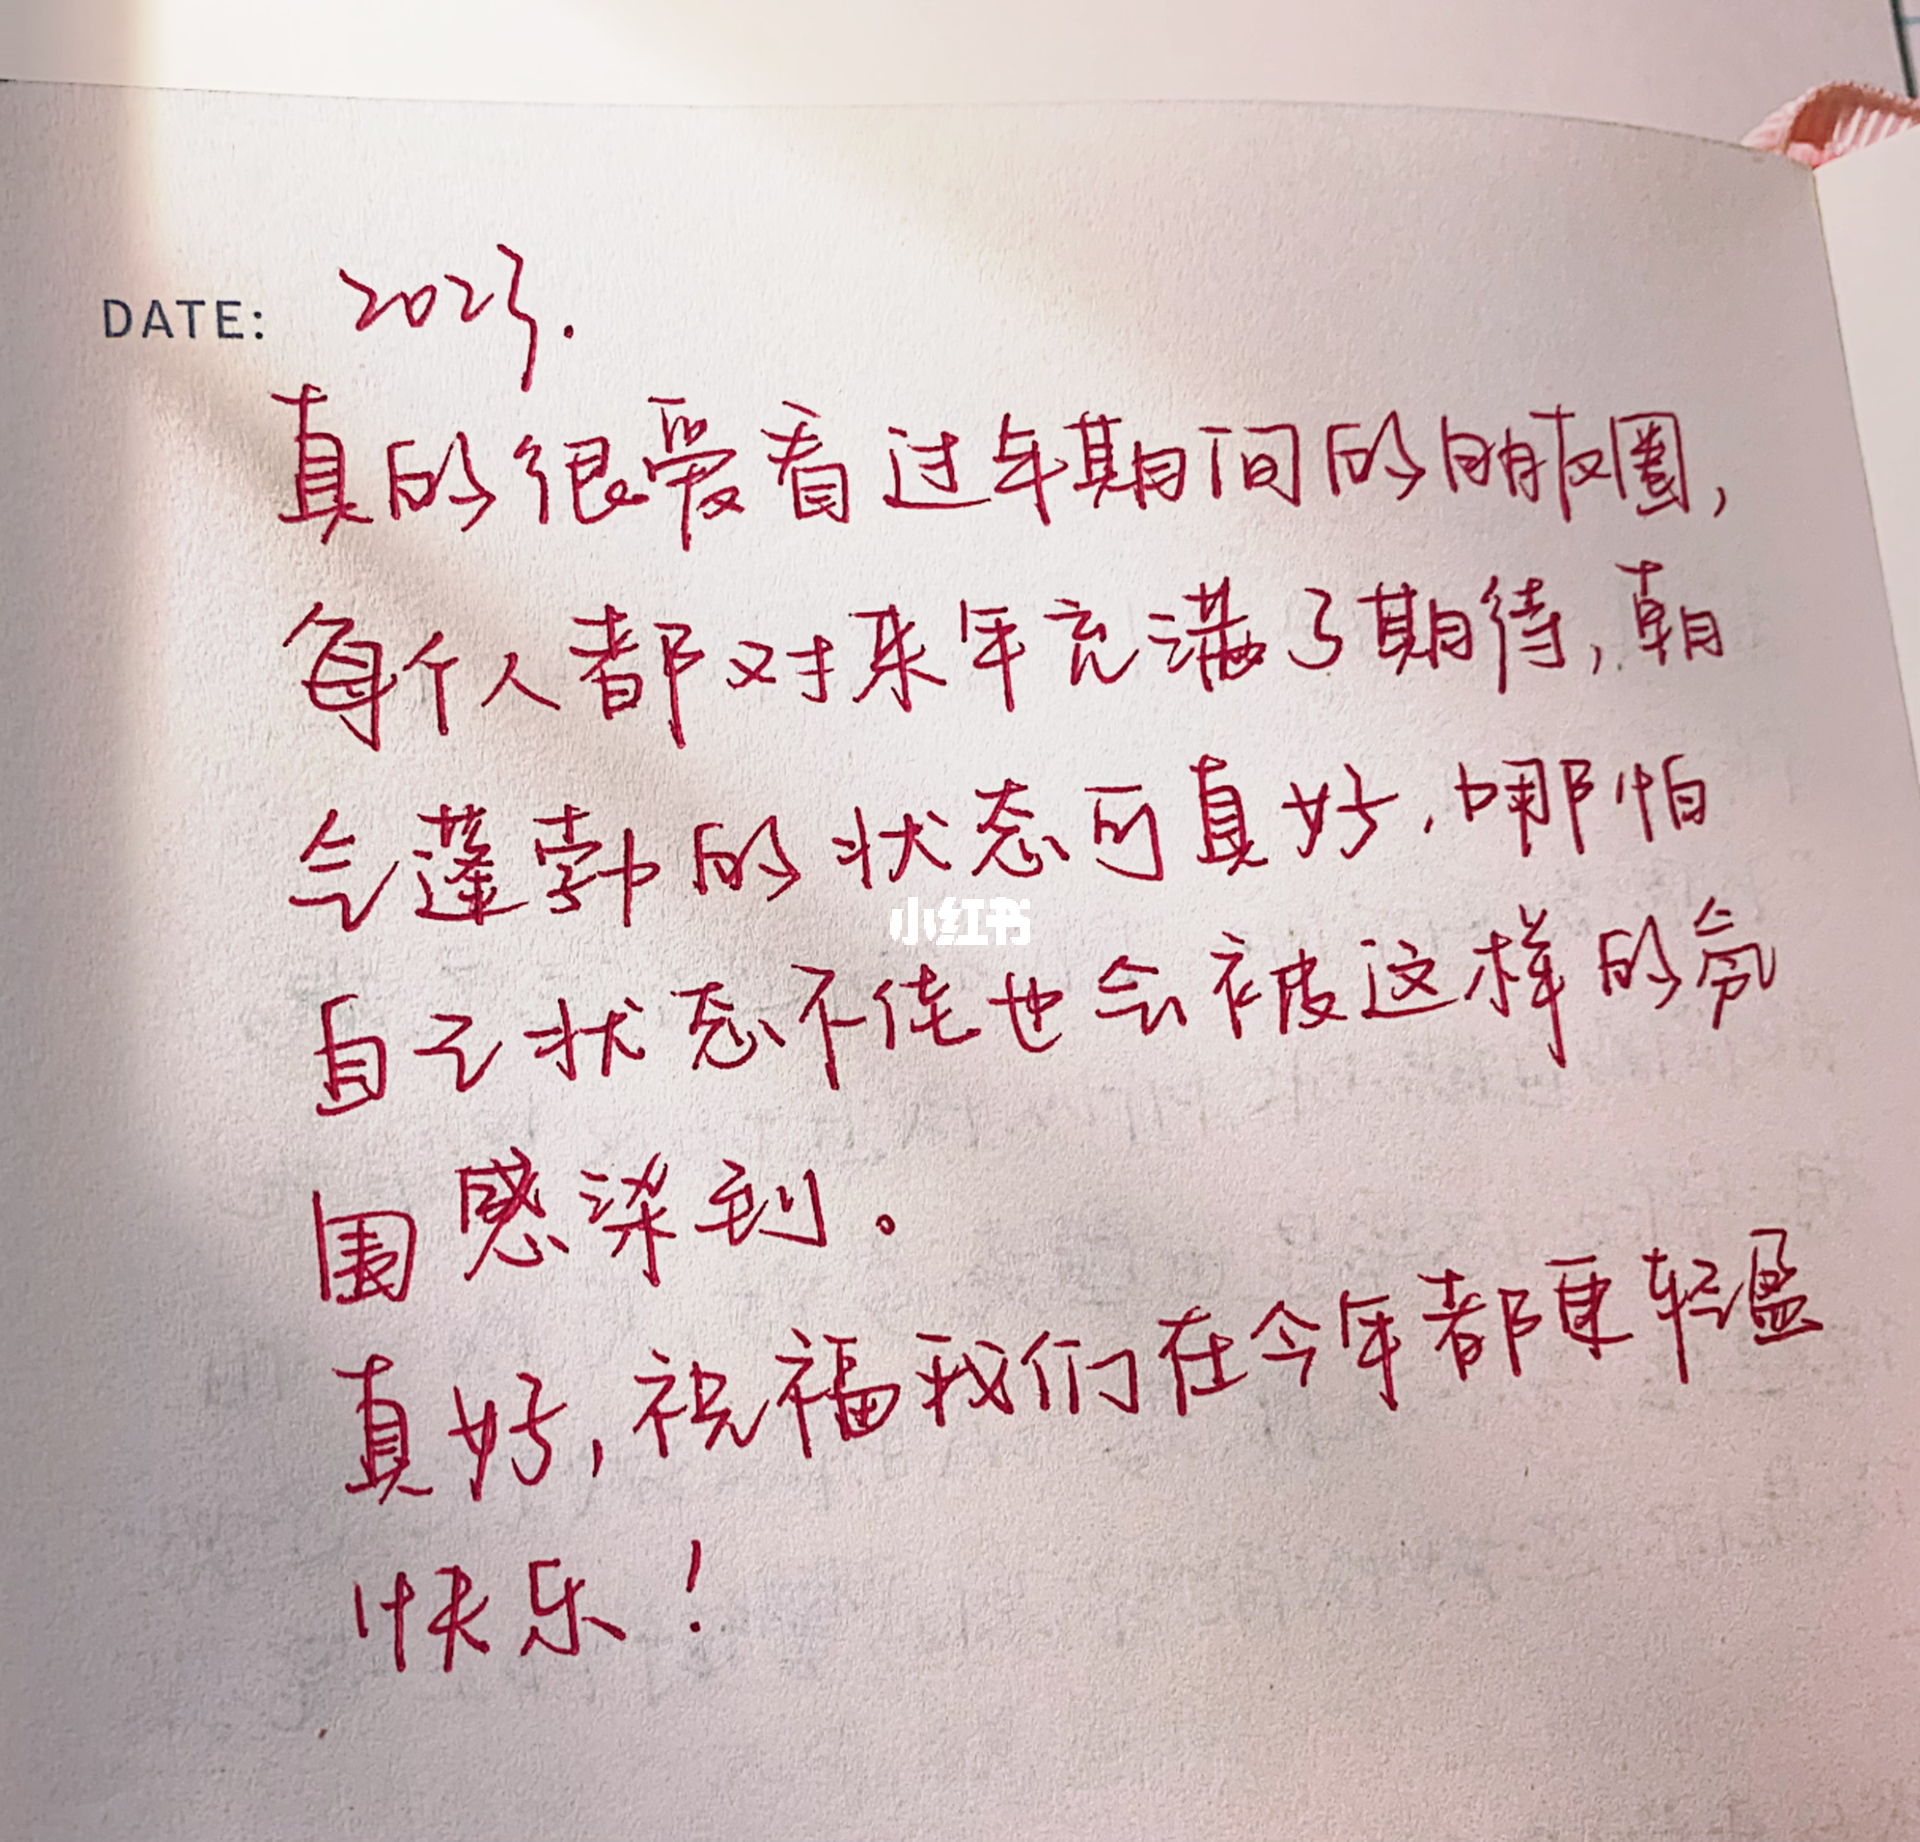 DATE: 2023.
真的很爱看过年期间的朋友圈,
每个人都对来年充满了期待,朝
气蓬勃的状态可真好,哪怕
小红书
自己状态不佳也会被这样的氛
围感染到。
真好,祝福我们在今年都更轻盈
快乐!